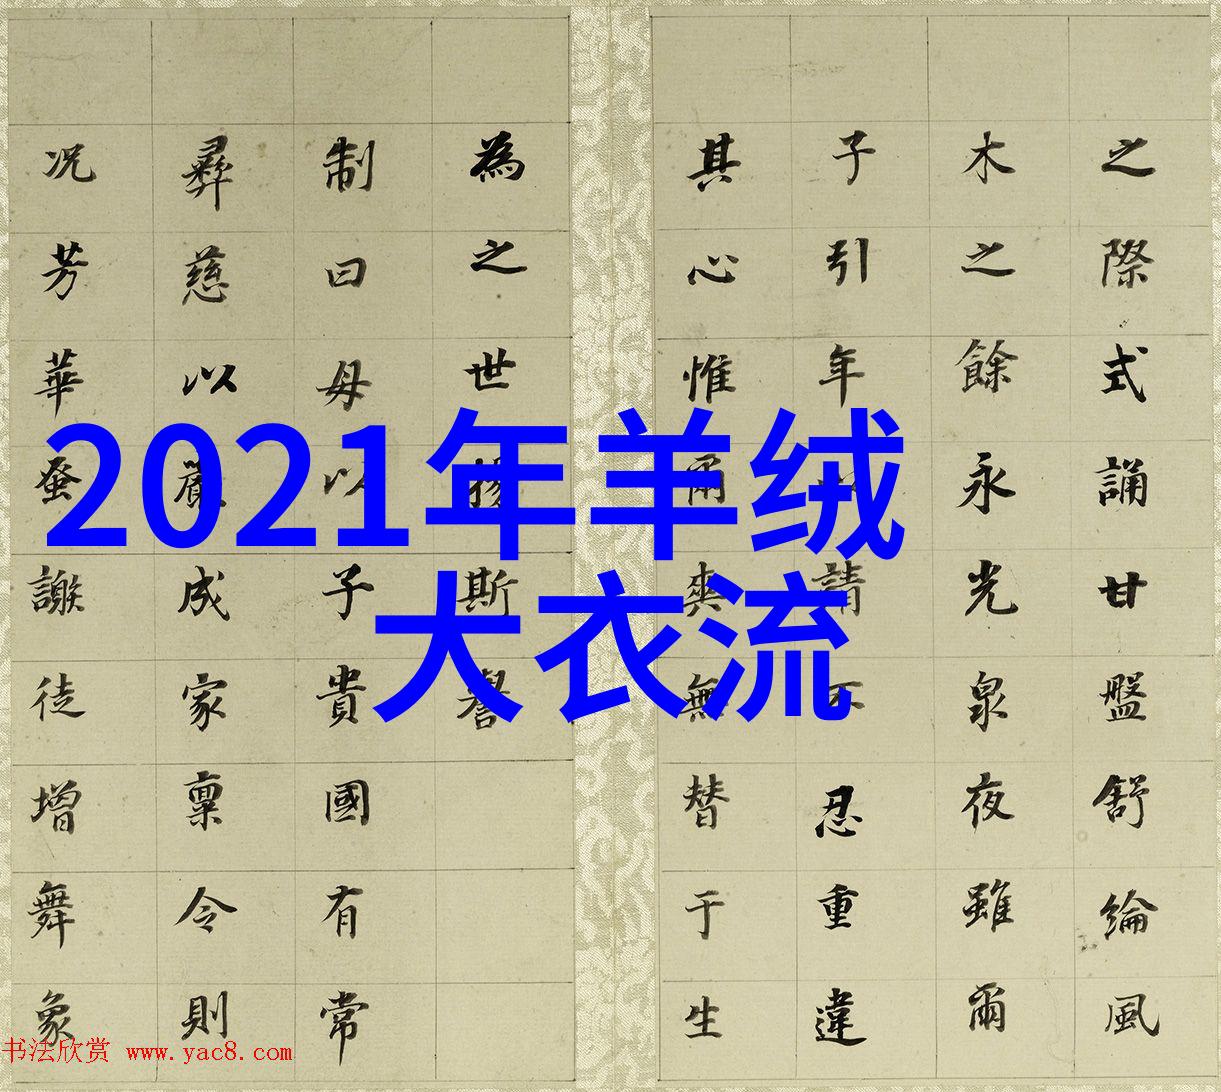 2021年羊绒
大衣流
之際式誦甘盤舒綸風
木之餘永光泉夜雖爾
子引年請不忍重違
其心惟爾奭無替于生
為之世揚斯譽
制曰母以子貴國有常
彝慈以嚴成家稟令則
况芳華蚤謝徒增舞象
书法欣赏 www.yac8.com